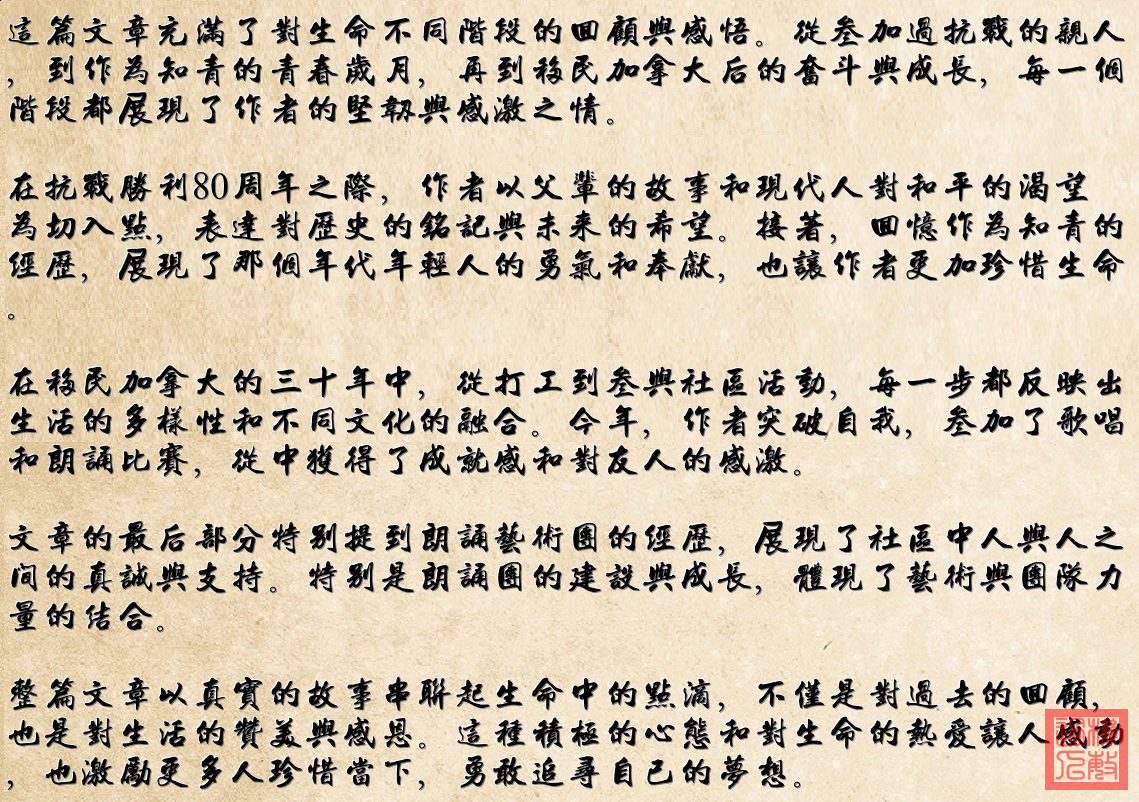 這篇文章充滿了對生命不同階段的回顧與感悟。從叁加過抗戰的親人
，到作為知青的青春歲月，再到移民加拿大后的奮斗與成長，每一個
階段都展現了作者的堅韌與感激之情。
在抗戰勝利80周年之際，作者以父輩的故事和現代人對和平的渴望
為切入點，表達對歷史的銘記與未来的希望。接著，回憶作為知青的
經歷，展現了那個年代年輕人的勇氣和奉獻，也讓作者更加珍惜生命
。
在移民加拿大的三十年中，從打工到叁與社區活動，每一步都反映出
生活的多樣性和不同文化的融合。今年，作者突破自我，叁加了歌唱
和朗誦比賽，從中獲得了成就感和對友人的感激。
文章的最后部分特别提到朗誦藝術團的經歷，展現了社區中人與人之
间的真誠與支持。特别是朗誦團的建設與成長，體現了藝術與團隊力
量的结合。
整篇文章以真實的故事串聯起生命中的點滴，不僅是對過去的回顧，
也是對生活的贊美與感恩。這種積極的心態和對生命的熱愛讓人感動
，也激勵更多人珍惜當下，勇敢追尋自己的夢想。